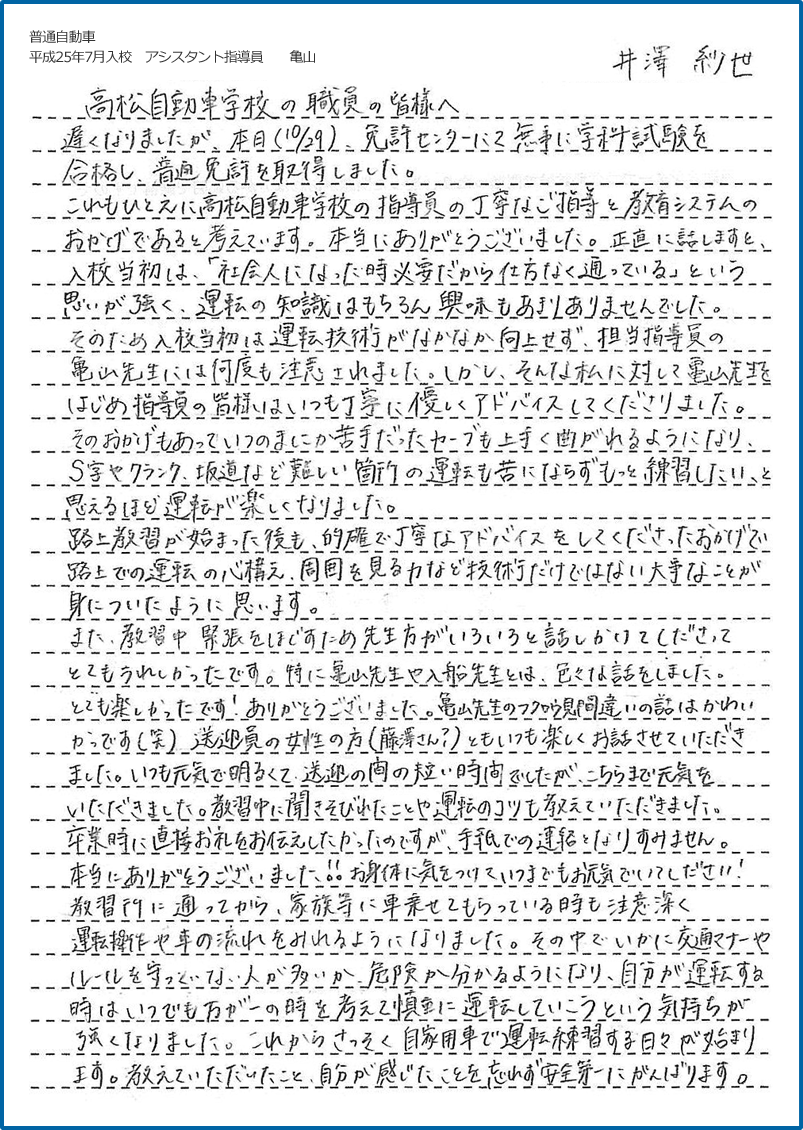 普通自動車
平成25年7月入校　アシスタント指導員　　亀山
井澤 紗世
高松自動車学校の職員の皆様へ
遅くなりましたが、本日(10/29)、免許センターにて無事に学科試験を
合格し、普通免許を取得しました。
これもひとえに高松自動車学校の指導員の丁寧なご指導と教育システムの
おかげであると考えています。本当にありがとうございました。正直に話しますと、
入校当初は、「社会人になった時必要だから仕方なく通っている」という
思いが強く、運転の知識はもちろん興味もあまりありませんでした。
そのため入校当初は運転技術がなかなか向上せず、担当指導員の
亀山先生には何度も注意されました。しかし、そんな私に対して亀山先生を
はじめ指導員の皆様はいつも丁寧に優しくアドバイスしてくださりました。
そのおかげもあっていつのまにか苦手だったカーブも上手く曲がれるようになり、
S字やクランク、坂道など難しい箇所の運転も苦にならずもっと練習したい、と
思えるほど運転が楽しくなりました。
路上教習が始まった後も、的確で丁寧なアドバイスをしてくださったおかげで
路上での運転の心構え、周囲を見る力など技術だけではない大事なことが
身についたように思います。
また、教習中緊張をほぐすため先生方がいろいろと話しかけてくださって
とてもうれしかったです。特に亀山先生や入船先生とは、色々な話をしました。
とても楽しかったです!ありがとうございました。亀山先生のフクロウ見間違いの話はかわい
かっです(笑) 送迎員の女性の方(藤澤さん?)ともいつも楽しくお話させていただき
ました。いつも元気で明るくて、送迎の間の短い時間でしたが、こちらまで元気を
いただきました。教習中に聞きそびれたことや運転のコツも教えていただきました。
卒業時に直接お礼をお伝えしたかったのですが、手紙での連絡となりすみません。
本当にありがとうございました!!お身体に気をつけていつまでもお元気でいてください!
教習所に通ってから、家族等に車乗せてもらっている時も注意深く
運転操作や車の流れをみれるようになりました。その中でいかに交通マナーや
ルールを守っていない人が多いか、危険か分かるようになり、自分が運転する
時はいつでも万が一の時を考えて慎重に運転していこうという気持ちが
強くなりました。これからさっそく自家用車で運転練習する日々が始まり
ます。教えていただいたこと、自分が感じたことを忘れず安全第一にがんばります。